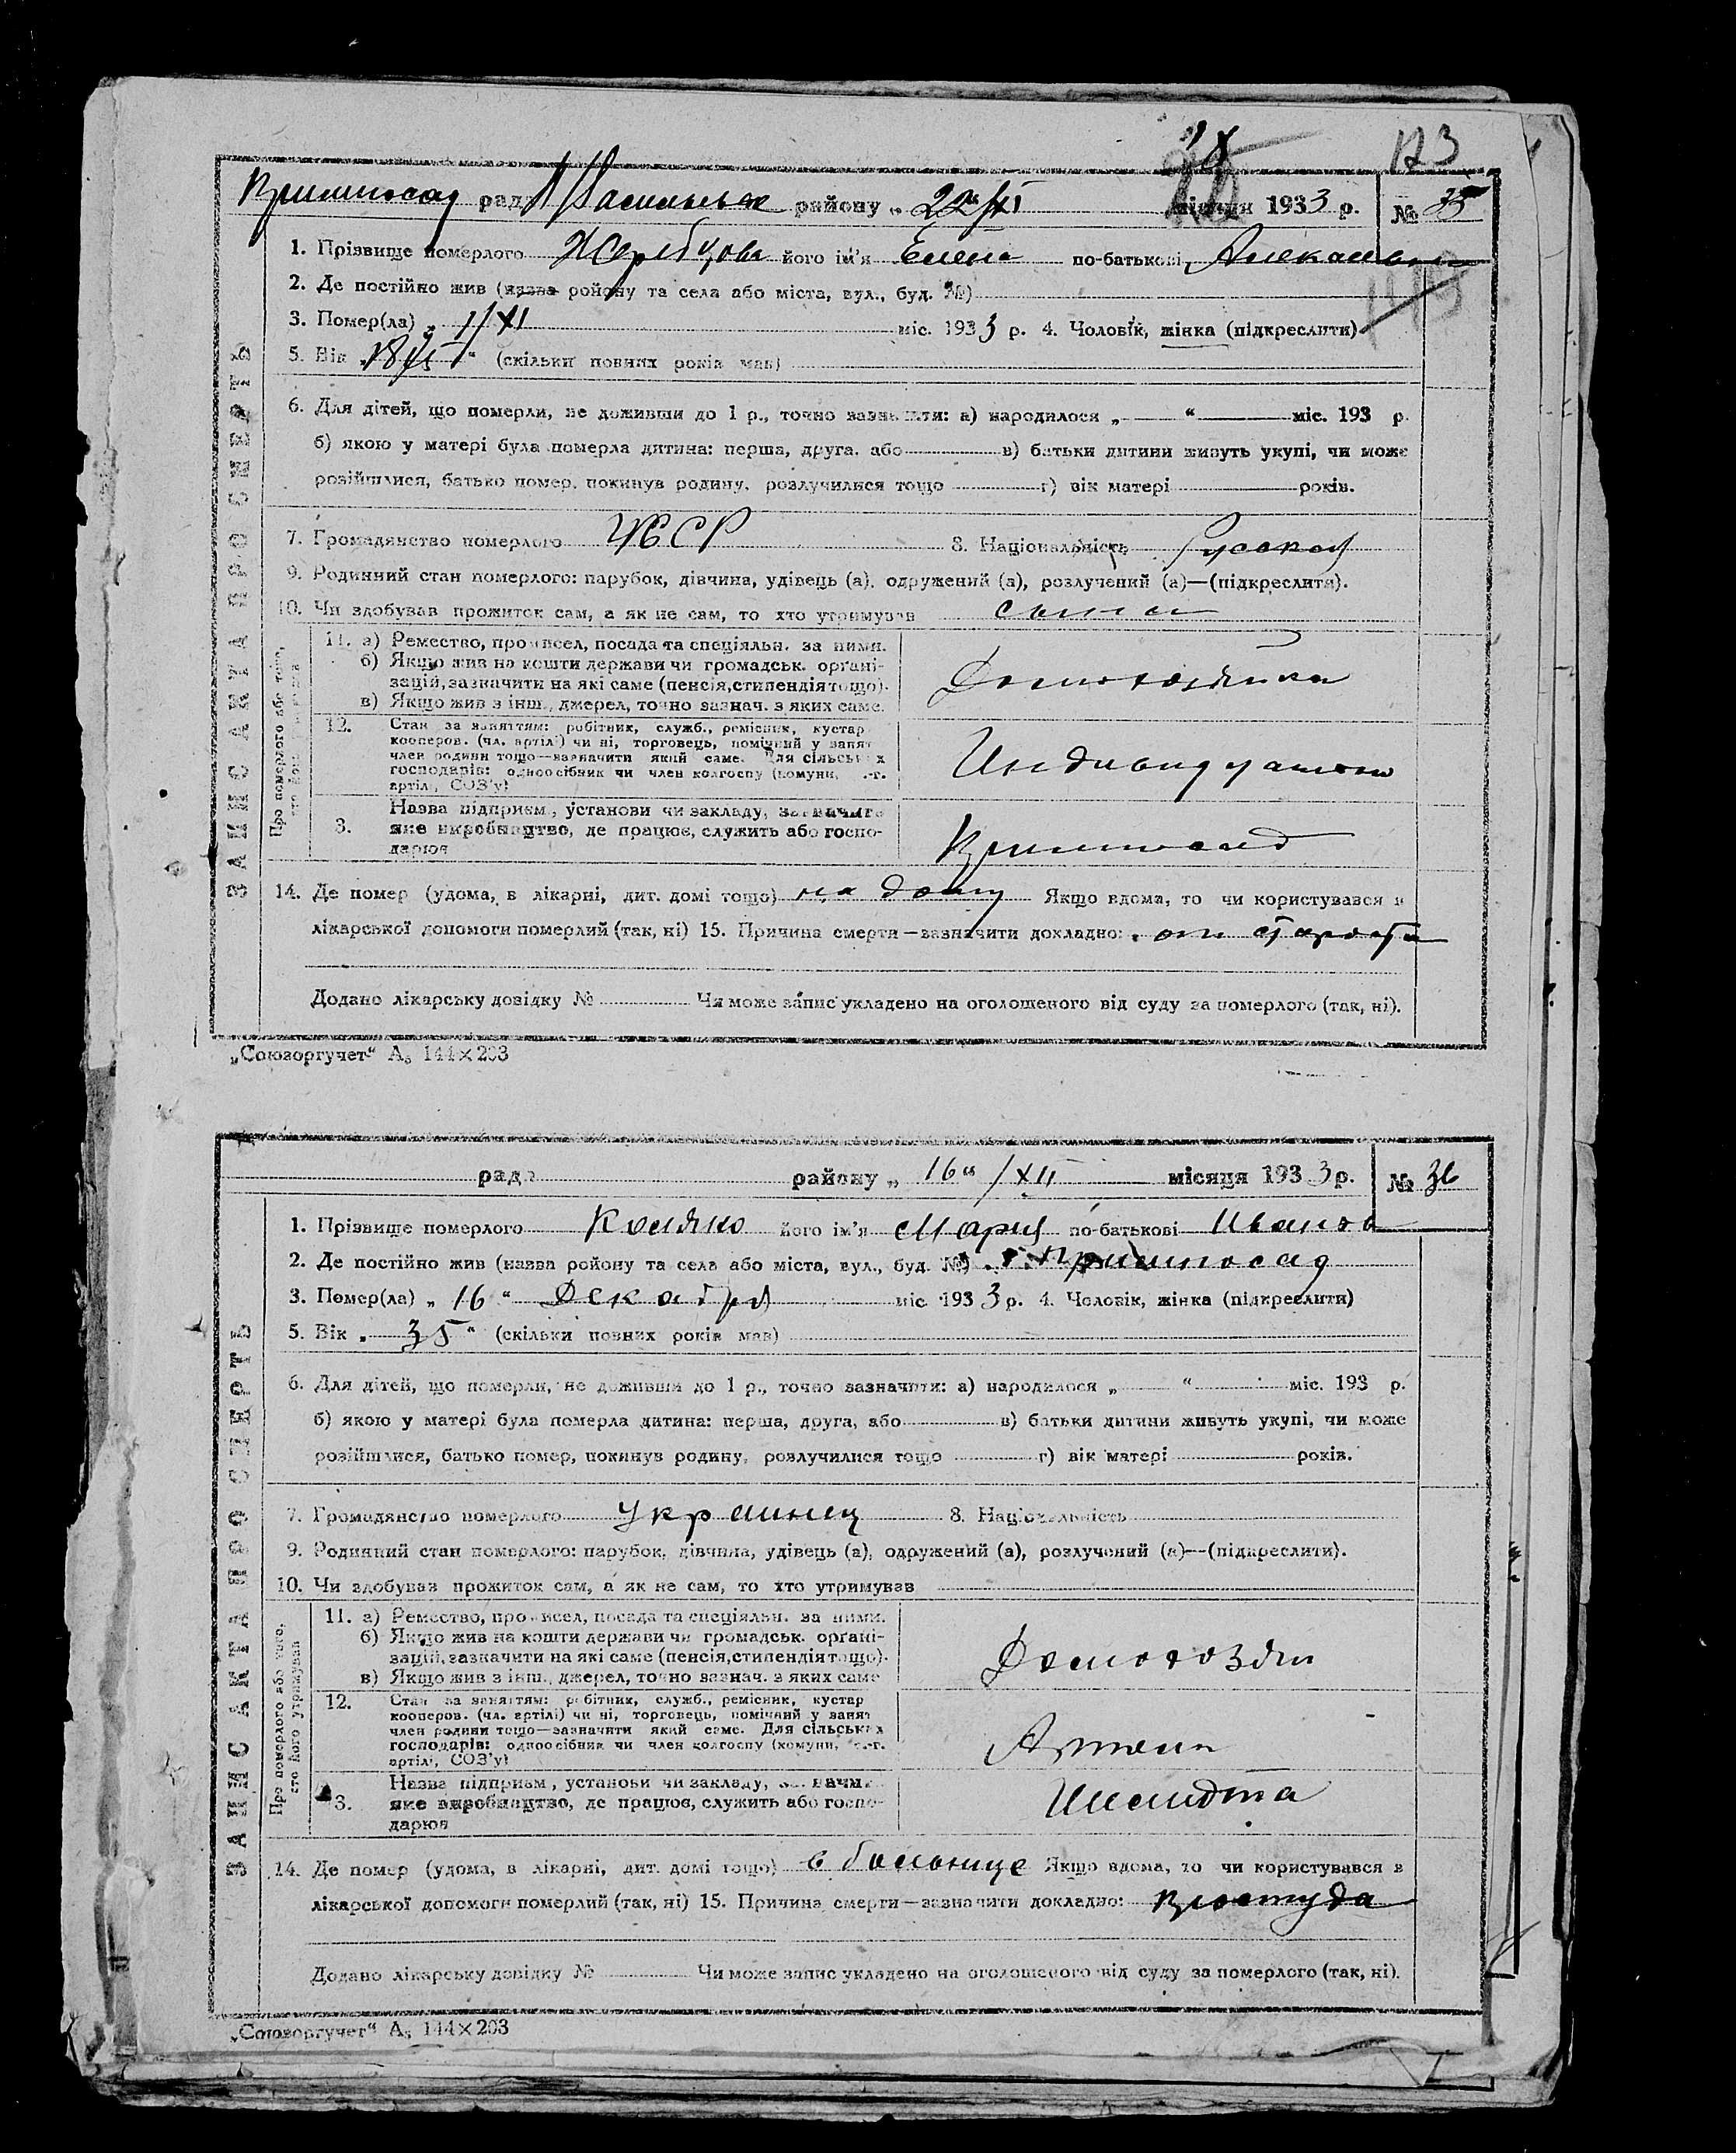 173
рада районy „ 22 XI місяця 1933 р. № 35
1. Прізвище померлого Жеребцова його ім'я Елена по-батькові
2. Де постійно жив (назва ройону та села або міста, вул., буд. №)
3. Помер(ла) „ 1/XI міс. 1933 р. 4. Чоловік, жінка (підкреслити)
5. Вік „ “ (скільки повних років мав)
6. Для дітей, що померли, не доживши до 1 р., точно зазначити: а) народилося „ “ міс. 193 р.
б) якою у матері була померла дитина: перша, друга, або в) батьки дитини живуть укупі, чи може
розійшлися, батько помер, покинув родину, розлучилися тощо г) вік матері років.
7. Громадянство померлого УССР 8. Національність Русская
9. Родинний стан померлого: парубок, дівчина, удівець (а), одружений (а), розлучений (а)—(підкреслити).
10. Чи здобував прожиток сам, а як не сам, то хто утримував
11. а) Ремество, промисел, посада та спеціяльн. за ними.
б) Якщо жив на кошти держави чи громадськ. органі-
зацій, зазначити на які саме (пенсія, стипендія тощо).
в) Якщо жив з інш., джерел, точно зазнач. з яких саме.
Домохозяйка
12. Стан за заняттям: робітник, служб., ремісник, кустар
кооперов. (чл. артілі) чи ні, торговець, помічний у занят
член родини тощо—зазначити який саме. Для сільських
господарів: одноосібник чи член колгоспу (комуни, с.-г.
артілі, СОЗ'у)
3. Назва підприєм, установи чи закладу, зазначити
яке виробництво, де працює, служить або госпо-
дарює
14. Де помер (удома, в лікарні, дит. домі тощо) на дому Якщо вдома, то чи користувався з
лікарської допомоги померлий (так, ні) 15. Причина смерти—зазначити докладно: от
Додано лікарську довідку № Чи може запис укладено на оголошеного від суду за померлого (так, ні).
ЗАПИС АКТА ПРО СМЕРТЬ
„Союзоргучет“ А₅ 144×203
рада районy „ 16 “ / XII місяця 1933 р. № 36
1. Прізвище померлого Коляко його ім'я Мария по-батькові Иванов
2. Де постійно жив (назва ройону та села або міста, вул., буд. №) Пришпосад
3. Помер(ла) „ 16 “ Декабря міс. 1933 р. 4. Чоловік, жінка (підкреслити)
5. Вік „ 35 “ (скільки повних років мав)
6. Для дітей, що померли, не доживши до 1 р., точно зазначити: а) народилося „ “ міс. 193 р.
б) якою у матері була померла дитина: перша, друга, або в) батьки дитини живуть укупі, чи може
розійшлися, батько помер, покинув родину, розлучилися тощо г) вік матері років.
7. Громадянство померлого Украинец 8. Національність
9. Родинний стан померлого: парубок, дівчина, удівець (а), одружений (а), розлучений (а)—(підкреслити).
10. Чи здобував прожиток сам, а як не сам, то хто утримував
11. а) Ремество, промисел, посада та спеціяльн. за ними.
б) Якщо жив на кошти держави чи громадськ. органі-
зацій, зазначити на які саме (пенсія, стипендія тощо).
в) Якщо жив з інш., джерел, точно зазнач. з яких саме
Домохозяи
12. Стан за заняттям: робітник, служб., ремісник, кустар
кооперов. (чл. артілі) чи ні, торговець, помічний у занят
член родини тощо—зазначити який саме. Для сільських
господарів: одноосібник чи член колгоспу (комуни, с.-г.
артілі, СОЗ'у)
Артели
3. Назва підприєм, установи чи закладу, зазначити
яке виробництво, де працює, служить або госпо-
дарює
Шмидта
14. Де помер (удома, в лікарні, дит. домі тощо) в больнице Якщо вдома, то чи користувався з
лікарської допомоги померлий (так, ні) 15. Причина смерти—зазначити докладно: Простуда
Додано лікарську довідку № Чи може запис укладено на оголошеного від суду за померлого (так, ні).
ЗАПИС АКТА ПРО СМЕРТЬ
Про померлого або того, хто його утримував
„Союзоргучет“ А₅ 144×203